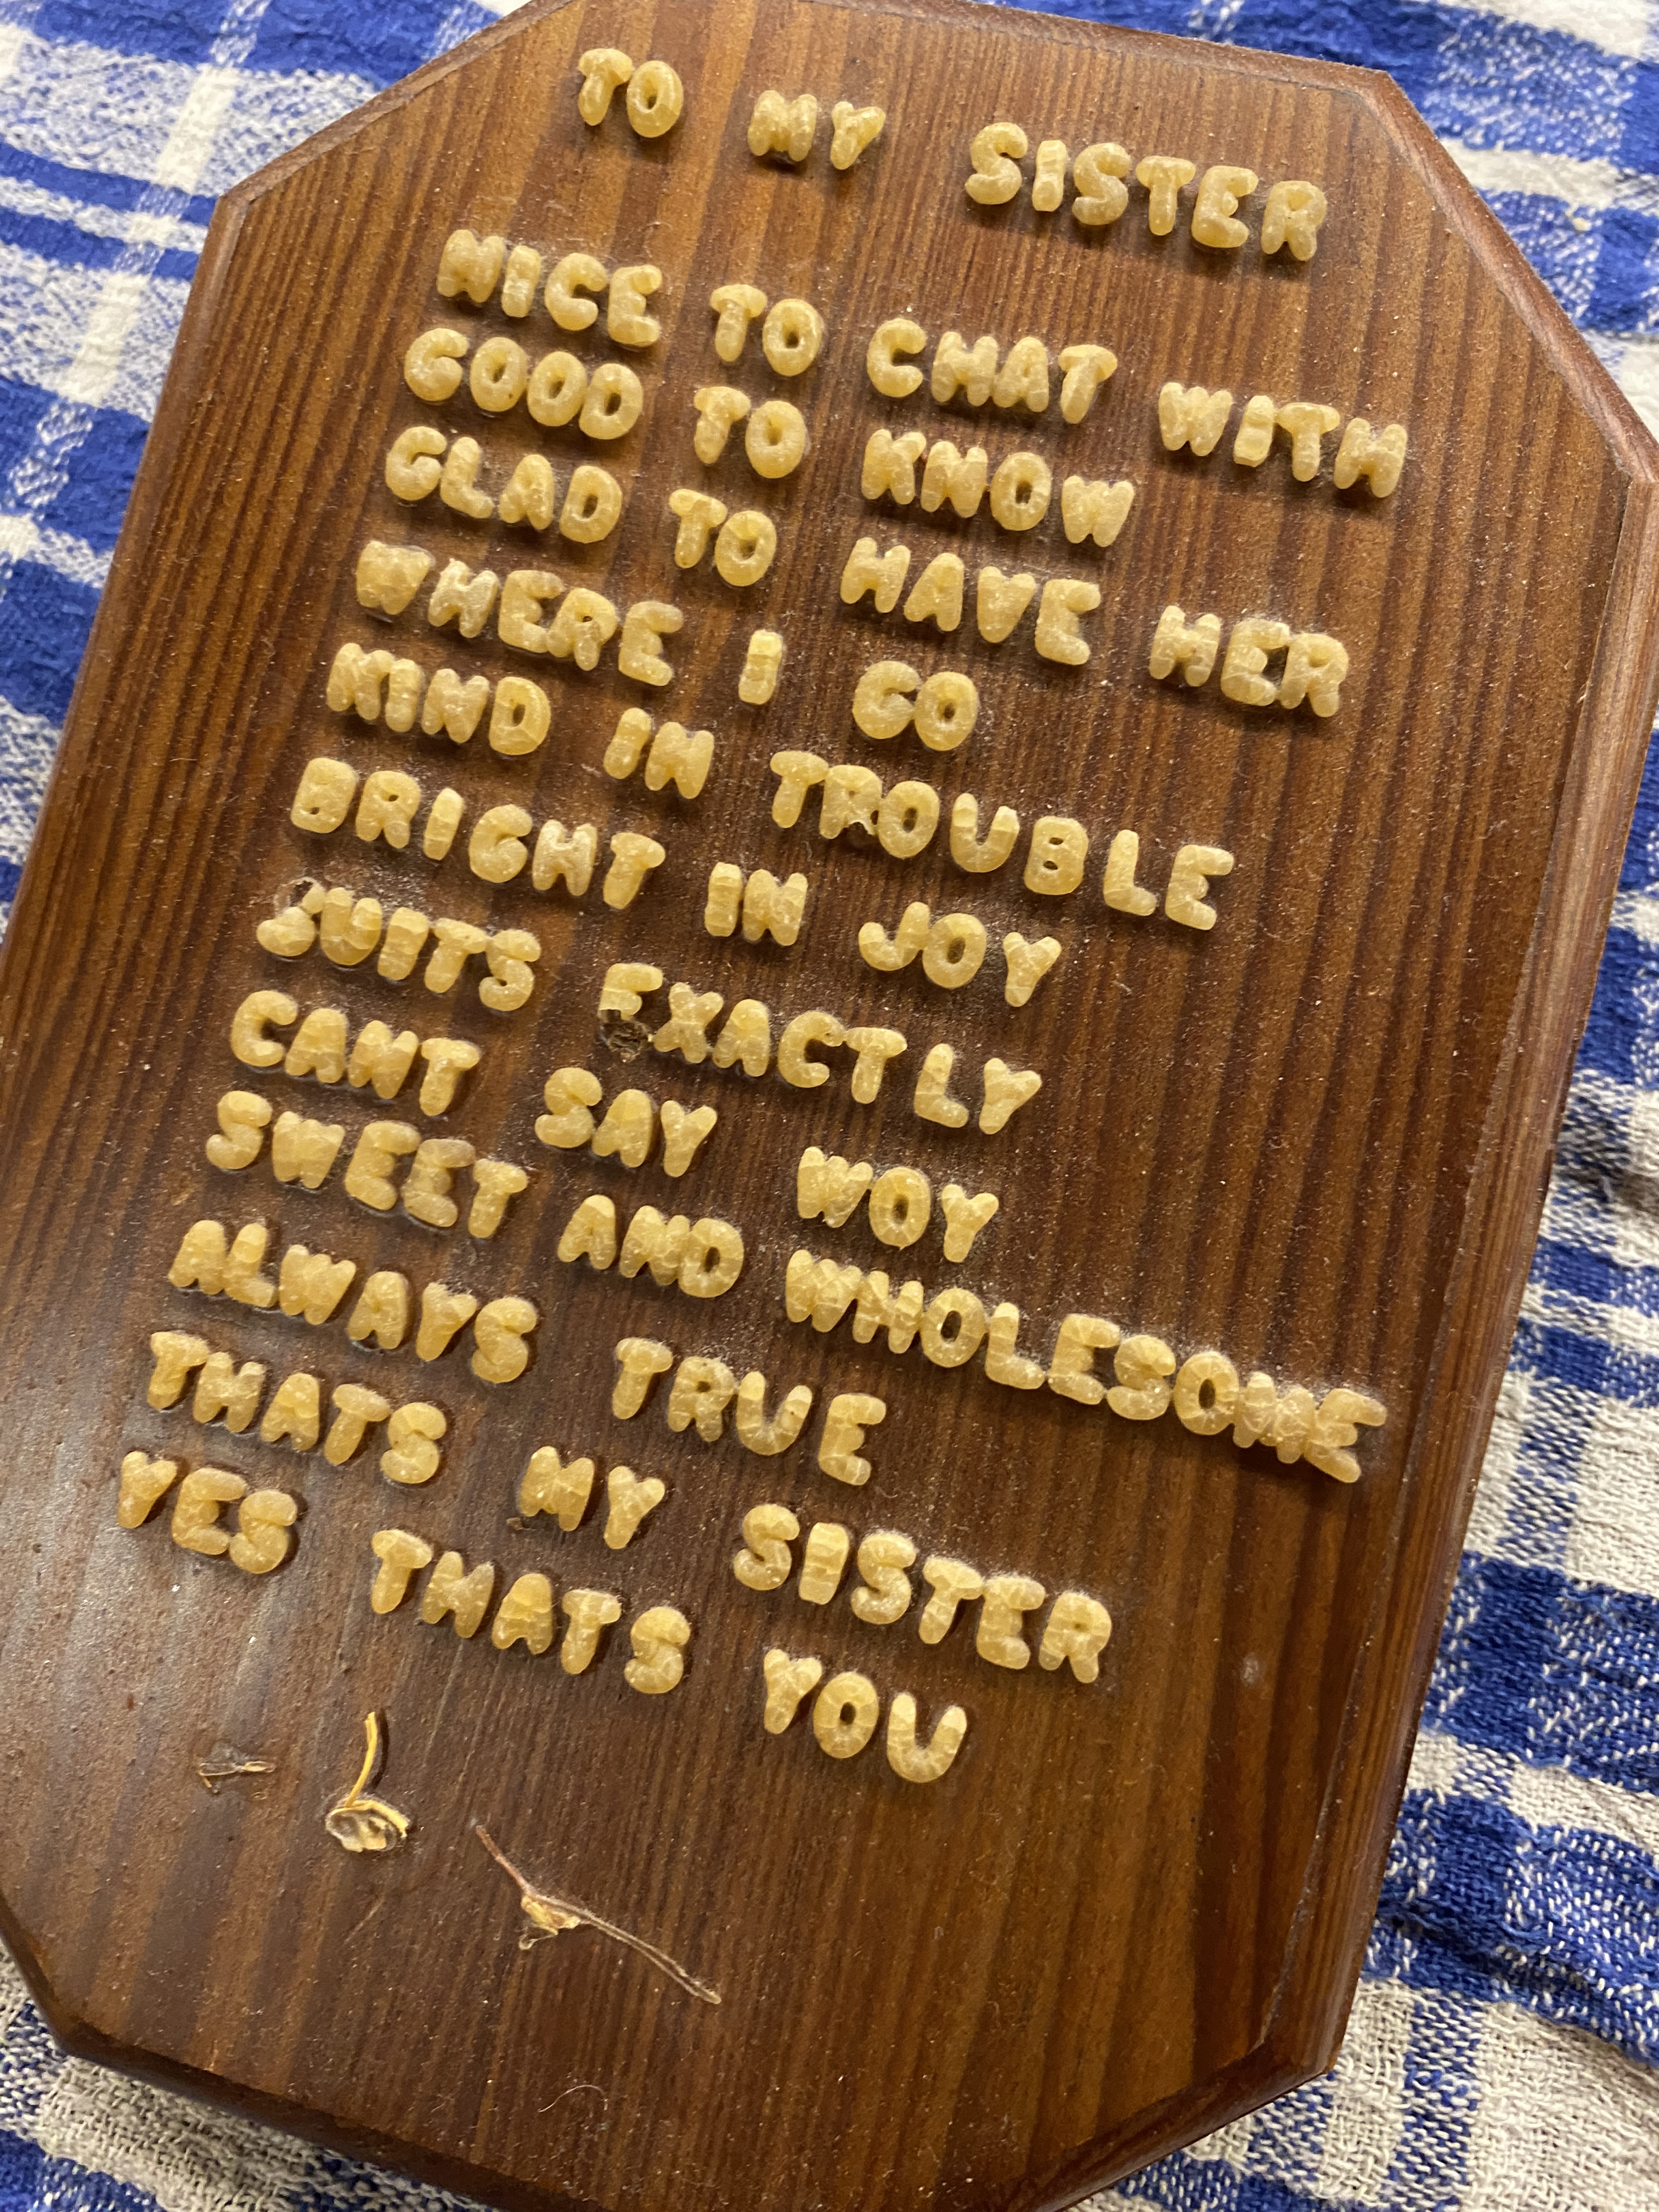 TO MY SISTER
NICE TO CHAT WITH
GOOD TO KNOW
GLAD TO HAVE HER
WHERE I GO
KIND IN TROUBLE
BRIGHT IN JOY
SUITS EXACTLY
CANT SAY WOY
SWEET AND WHOLESOME
ALWAYS TRUE
THATS MY SISTER
YES THATS YOU